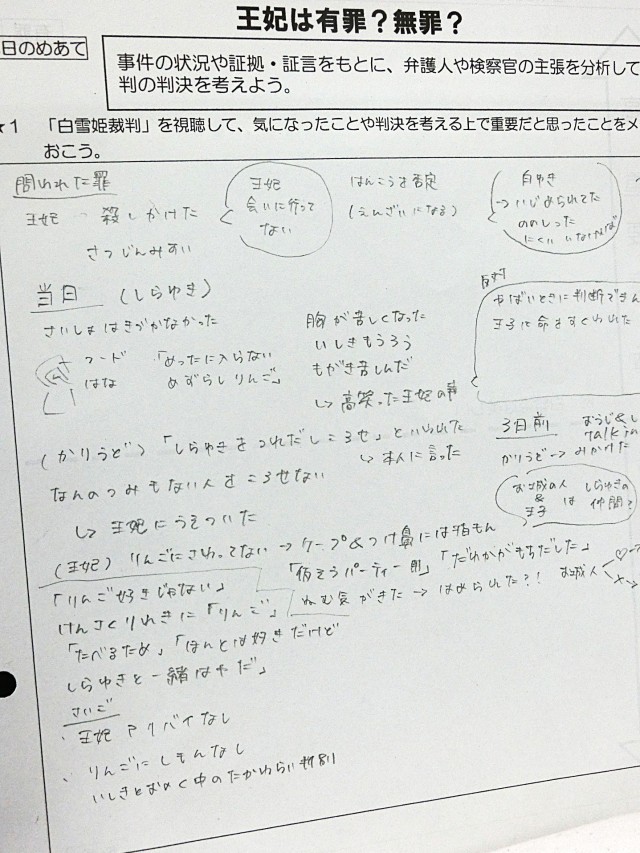 王妃は有罪？無罪？
日のめあて
事件の状況や証拠・証言をもとに、弁護人や検察官の主張を分析して
判の判決を考えよう。
★1 「白雪姫裁判」を視聴して、気になったことや判決を考える上で重要だと思ったことをメ
おこう。
問われた罪
王妃 殺しかけた
さつじんみすい
王妃
会いに行って
ない
はんこうを否定
(えんざいになる)
白ゆき
→いじめられてた
ののしった
にくい
当日 (しらゆき)
さいしょはきづかなかった
フード 「めったに入らない
はな めずらしりんご」
胸が苦しくなった
いしきもうろう
もがき苦しんだ
↳高笑った王妃の声
やばいときに判断できん
王子に命をすくわれた
(かりうど) 「しらゆきをつれだしころせ」といわれた
↳本人に言った
なんのつみもない人をころせない
↳王妃にうえついた
3日前 おうじ&し
talk
かりうど→みかけた
お城の人
&
王子 は しらゆきの
仲間?
(王妃) りんごにさわってない→ケープ&つけ鼻には指もん
「りんご好きじゃない」
「仮そうパーティー用」「だれかがもちだした」
けんさくりれきに「りんご」
ねむ気がきた→はめられた?! お城人
「たべるため」「ほんとは好きだけど
しらゆきと一緒はやだ」
さいご
・王妃アリバイなし
・りんごにしもんなし
いしきとおのく中のたかわらい判別